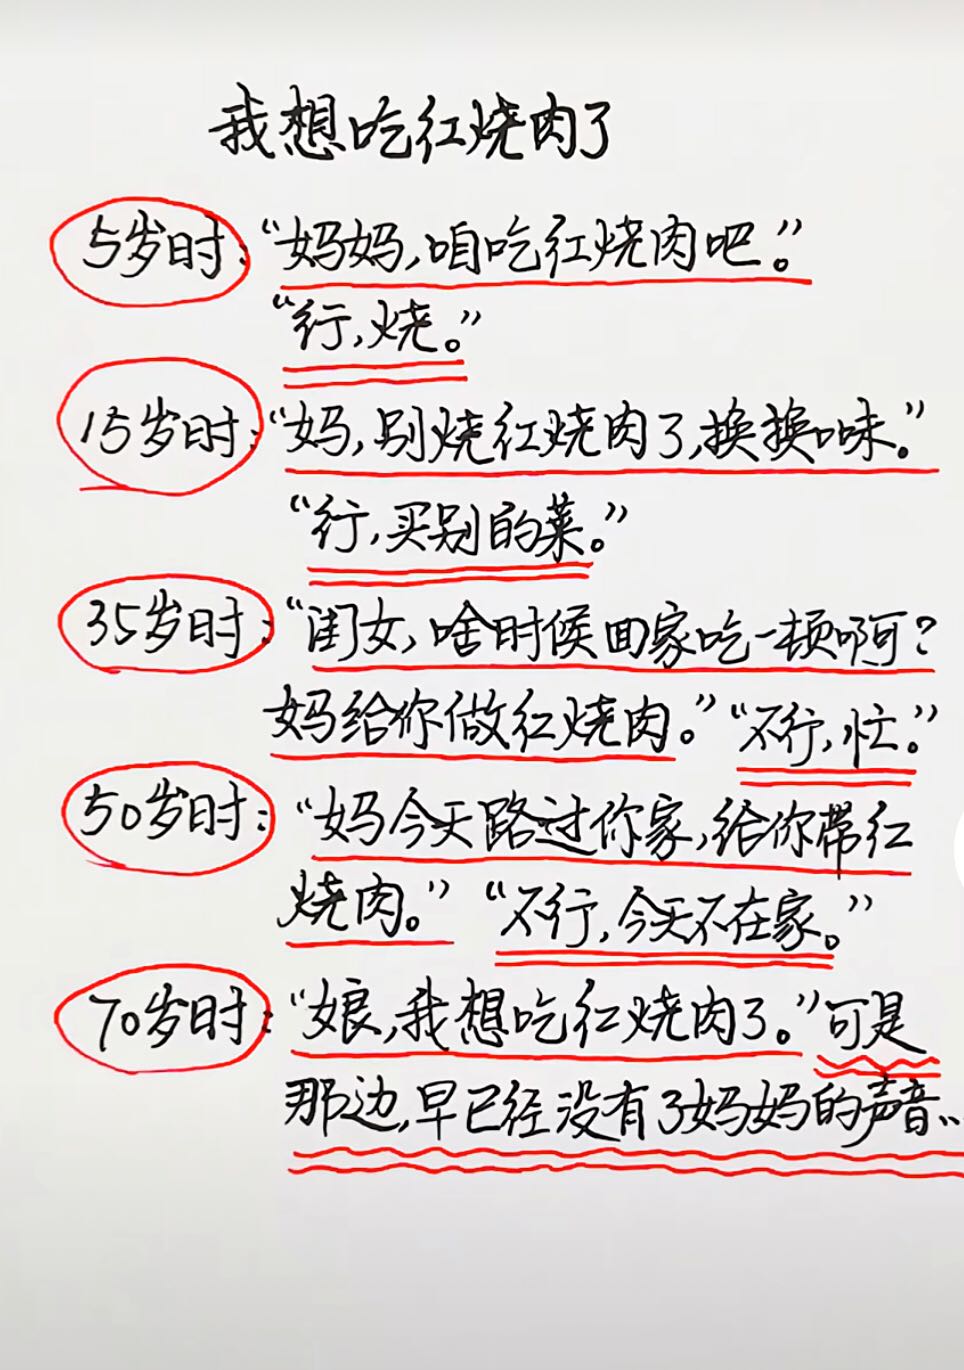 我想吃红烧肉了
5岁时:“妈妈,咱吃红烧肉吧。”
“行,烧。”
15岁时:“妈,别烧红烧肉了,换换口味。”
“行,买别的菜。”
35岁时:“闺女,啥时候回家吃一顿啊?
妈给你做红烧肉。”“不行,忙。”
50岁时:“妈今天路过你家,给你带红
烧肉。”“不行,今天不在家。”
70岁时:“娘,我想吃红烧肉了。”可是
那边,早已经没有了妈妈的声音…